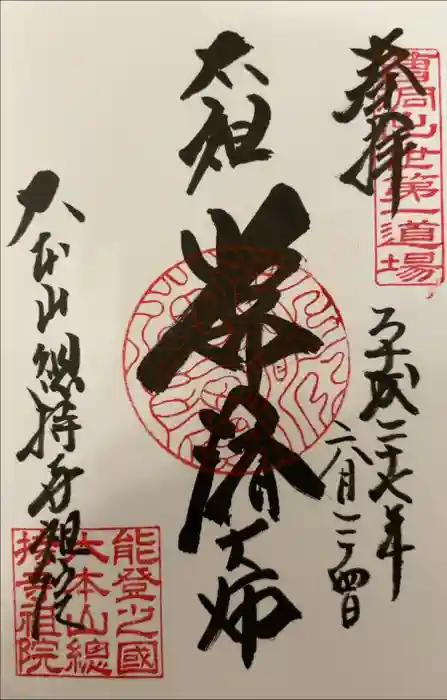 奉拝
曹洞出世第一道場
平成二十七年
六月二十四日
太祖
常済大師
大本山總持寺祖院
能登之國
大本山總
持寺祖院